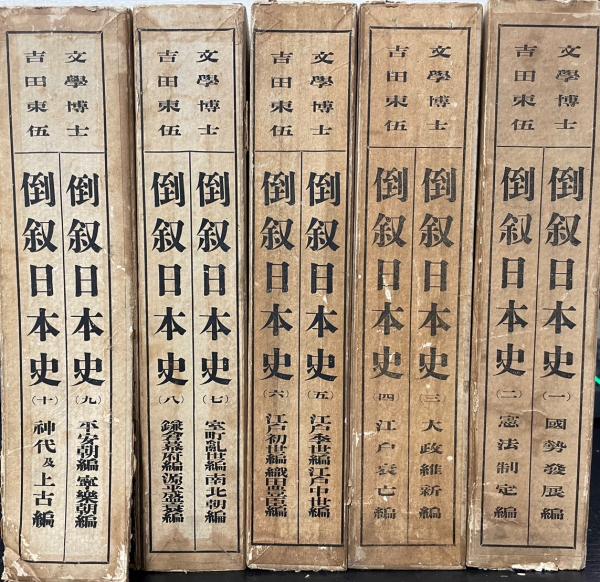 文學博士
吉田東伍
倒叙日本史(一)國勢發展編
倒叙日本史(二)憲法制定編
文學博士
吉田東伍
倒叙日本史(三)大政維新編
倒叙日本史(四)江戸衰亡編
文學博士
吉田東伍
倒叙日本史(五)江戸季世編江戸中世編
倒叙日本史(六)江戸初世編織田豊臣編
文學博士
吉田東伍
倒叙日本史(七)室町亂世編南北朝編
倒叙日本史(八)鎌倉幕府編源平盛衰編
文學博士
吉田東伍
倒叙日本史(九)平安朝編寧樂朝編
倒叙日本史(十)神代及上古編